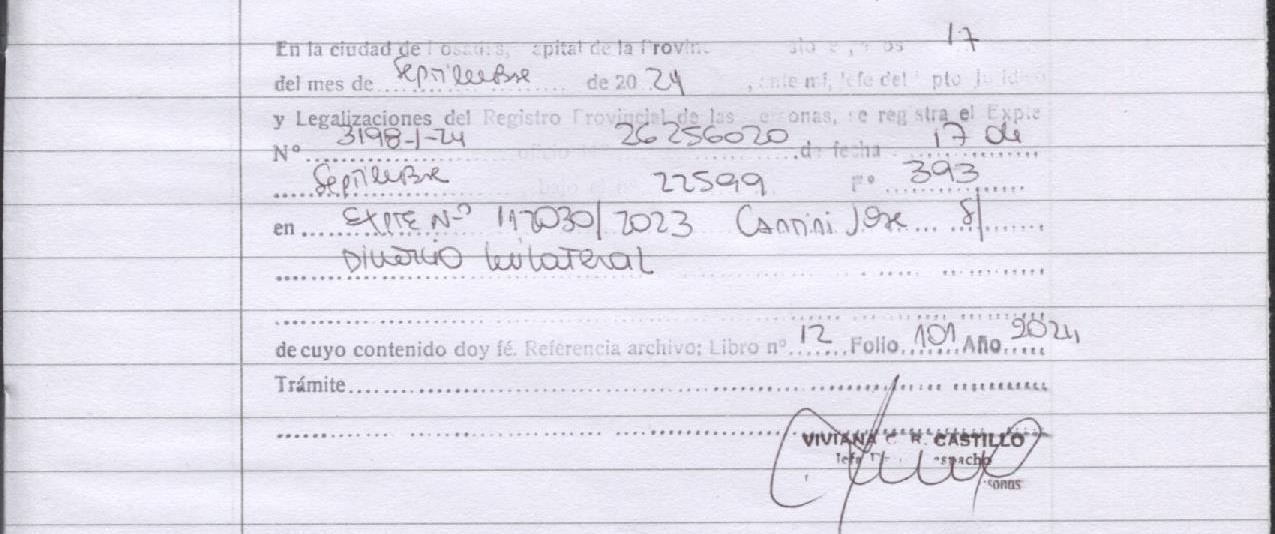 En la ciudad de Posadas, capital de la Provin 17
del mes de Septiembre de 20 24, ante mí, Jefe del Dpto Jurídico
y Legalizaciones del Registro Provincial de las Personas, se registra el Expte
Nº 3198-I-24 oficio Nº 26256020 de fecha 17 de
Septiembre bajo el nº 22599 Fº 393
en EXPTE Nº 117030/2023 José S/
Divorcio Unilateral
de cuyo contenido doy fé. Referencia archivo: Libro nº 12 Folio 101 Año 2024
Trámite
VIVIANA C. R. CASTILLO
Jefa Despacho
sonas